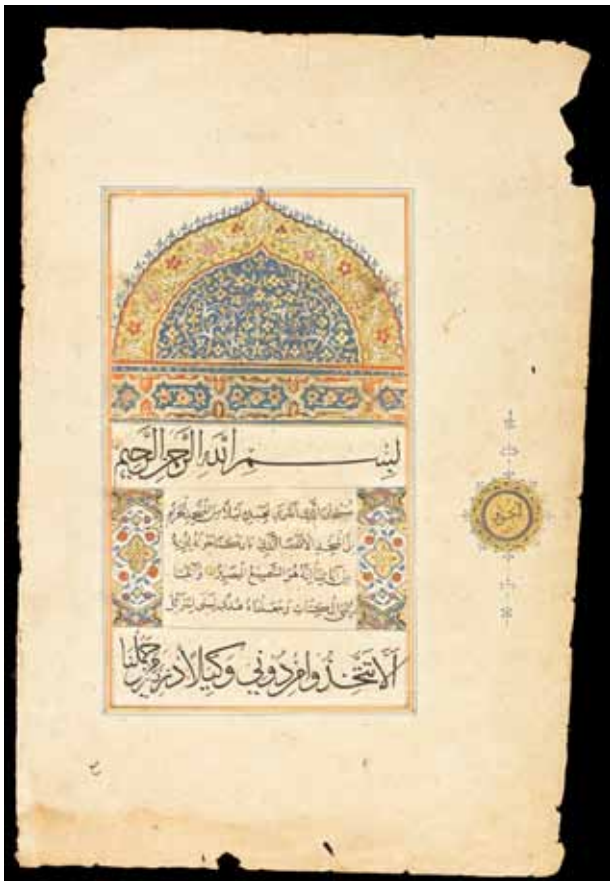 بِسْمِ اللَّهِ الرَّحْمٰنِ الرَّحِيمِ
سُبْحَانَ الَّذِي أَسْرَى بِعَبْدِهِ لَيْلًا مِنَ الْمَسْجِدِ الْحَرَامِ
إِلَى الْمَسْجِدِ الْأَقْصَى الَّذِي بَارَكْنَا حَوْلَهُ لِنُرِيَهُ
مِنْ آيَاتِنَا إِنَّهُ هُوَ السَّمِيعُ الْبَصِيرُ وَآتَيْنَا
مُوسَى الْكِتَابَ وَجَعَلْنَاهُ هُدًى لِبَنِي إِسْرَائِيلَ
أَلَّا تَتَّخِذُوا مِنْ دُونِي وَكِيلًا ذُرِّيَّةَ مَنْ حَمَلْنَا